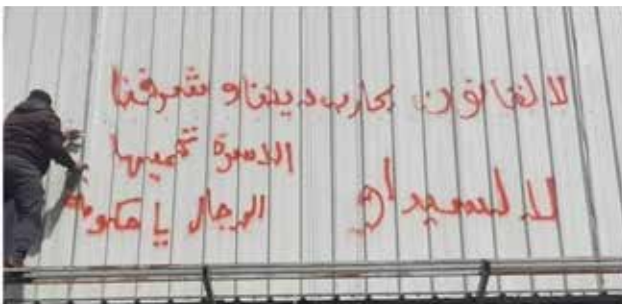 لا لقانون يحارب ديننا و شرفنا
الاسرة تحميها
الرجال يا حكومة
لا لسيداو